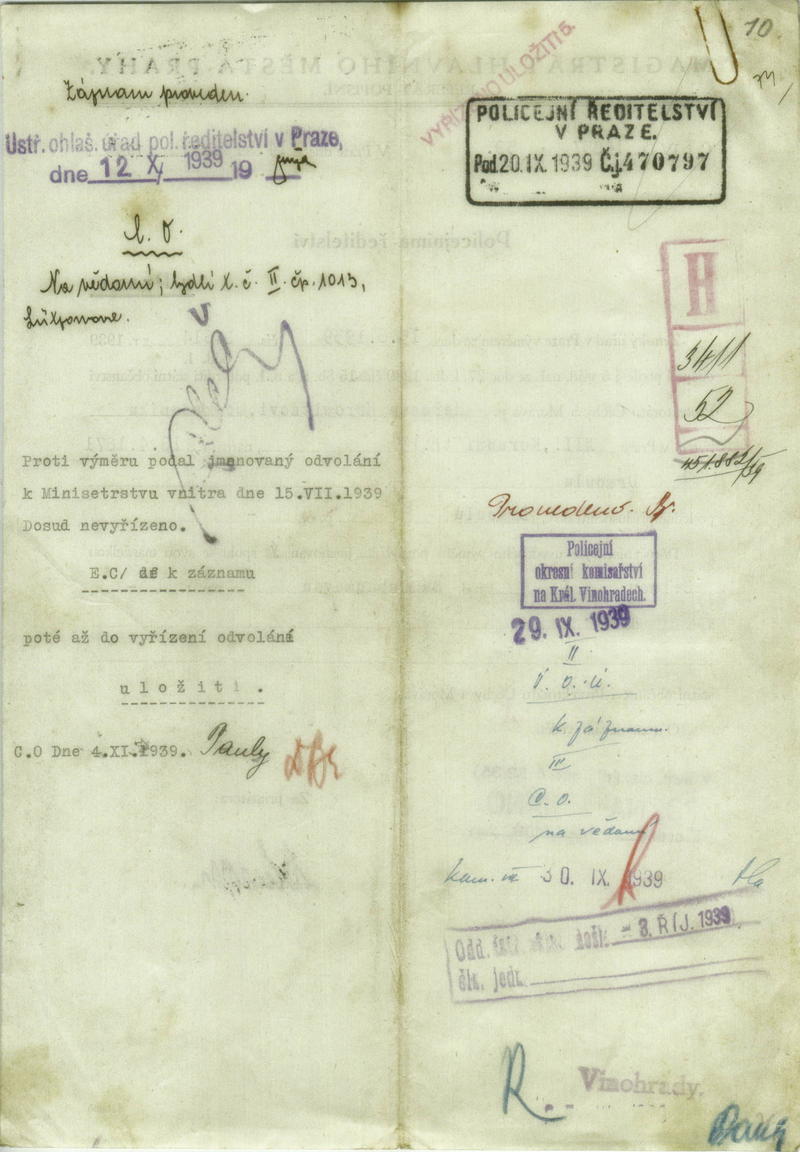 10
VYŘÍZENO ULOŽITI
Záznam proveden.
Ústř. ohlaš. úřad pol. ředitelství v Praze,
dne 12 X, 1939 19
POLICEJNÍ ŘEDITELSTVÍ
V PRAZE.
Pod. 20. IX. 1939 Č.j. 470797
Na vědomí; bydlí t. č. II. čp. 1013,
Lützowova.
H
3411
52
Proti výměru podal jmenovaný odvolání
k Minisetrstvu vnitra dne 15.VII.1939
Dosud nevyřízeno.
E.C/ k záznamu
poté až do vyřízení odvolání
uložiti .
C.O Dne 4.XI.1939. Pauly
Provedeno.
Policejní
okresní komisařství
na Král. Vinohradech.
29. IX. 1939
II
k záznamu.
III
C. O.
na vědomí
30. IX. 1939
Odd. došlo - 3. ŘÍJ. 1939
čís. jedn.
R. Vinohrady.